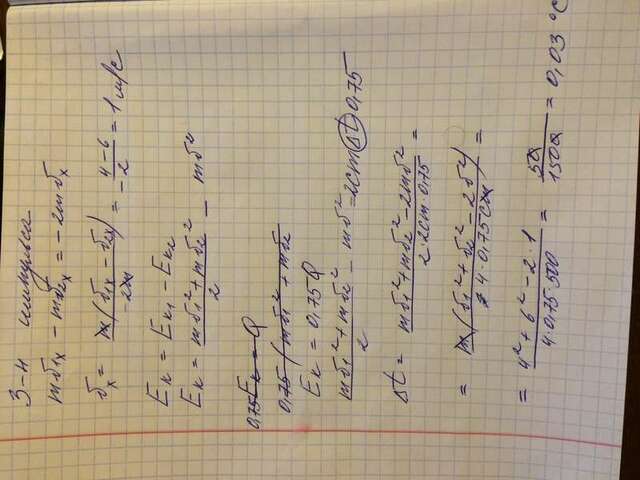 З-н импульса
mϑ₁ₓ - mϑ₂ₓ = -2mϑₓ
ϑₓ = m(ϑ₁ₓ - ϑ₂ₓ)/-2m = 4-6/-2 = 1 м/с
Eк = Eк₁ - Eк₂
Eк = mϑ₁² + mϑ₂²/2 - mϑ²
0,75Eк = Q
0,75 (mϑ₁² + mϑ₂
Eк = 0,75Q
mϑ₁² + mϑ₂²/2 - mϑ² = 2cmΔt·0,75
Δt = mϑ₁² + mϑ₂² - 2mϑ²/2·2cm·0,75 =
= m(ϑ₁² + ϑ₂² - 2ϑ²)/4·0,75cm =
= 4² + 6² - 2·1/4·0,75·500 = 50/1500 = 0,03 °C